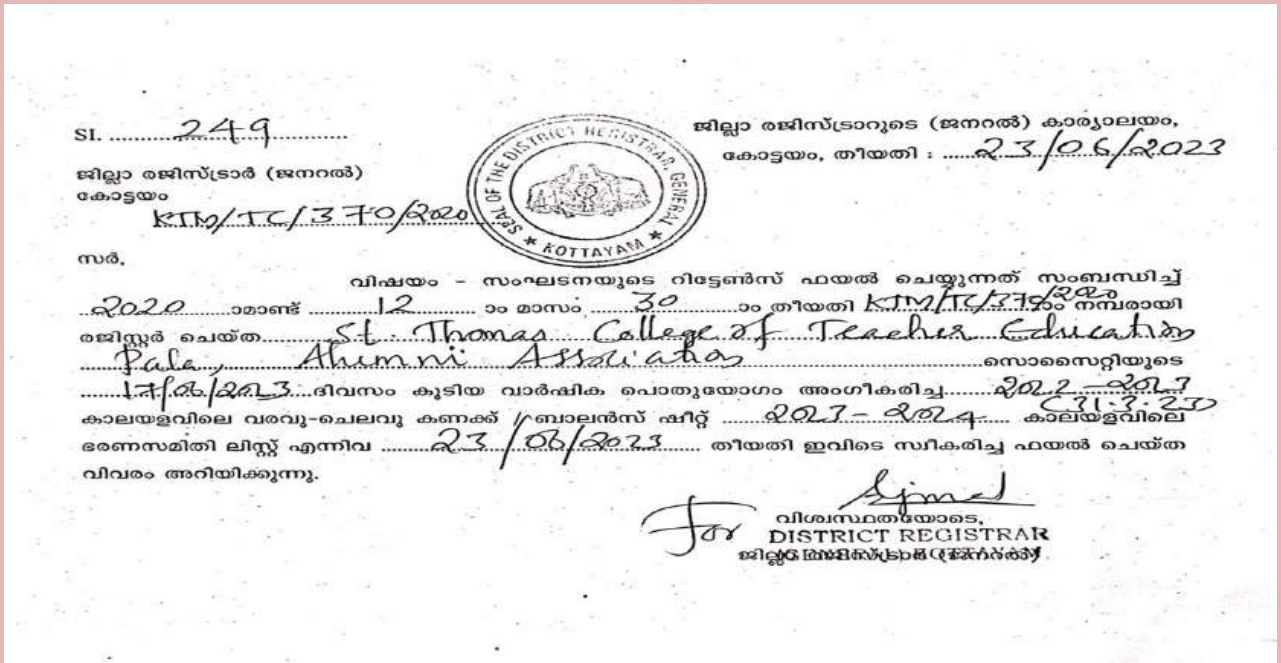 SI. 249
ജില്ലാ രജിസ്ട്രാറുടെ (ജനറൽ) കാര്യാലയം,
കോട്ടയം, തീയതി : 23/06/2023
ജില്ലാ രജിസ്ട്രാർ (ജനറൽ)
കോട്ടയം
KTM/TC/370/2020
SEAL OF THE DISTRICT REGISTRAR, GENERAL
★ KOTTAYAM ★
സർ,
വിഷയം - സംഘടനയുടെ റിട്ടേൺസ് ഫയൽ ചെയ്യുന്നത് സംബന്ധിച്ച്
2020 ാമാണ്ട് 12 ാം മാസം 30 ാം തീയതി KTM/TC/370/2020 ാം നമ്പരായി
രജിസ്റ്റർ ചെയ്ത St. Thomas College of Teacher Education
Pala, Alumni Association സൊസൈറ്റിയുടെ
17/06/2023 ദിവസം കൂടിയ വാർഷിക പൊതുയോഗം അംഗീകരിച്ച 2022-2023
(31.3.23)
കാലയളവിലെ വരവു-ചെലവു കണക്ക് / ബാലൻസ് ഷീറ്റ് 2023-2024 കാലയളവിലെ
ഭരണസമിതി ലിസ്റ്റ് എന്നിവ 23/06/2023 തീയതി ഇവിടെ സ്വീകരിച്ച ഫയൽ ചെയ്ത
വിവരം അറിയിക്കുന്നു.
For
വിശ്വസ്ഥതയോടെ,
DISTRICT REGISTRAR
ജില്ലാ രജിസ്ട്രാർ (ജനറൽ)